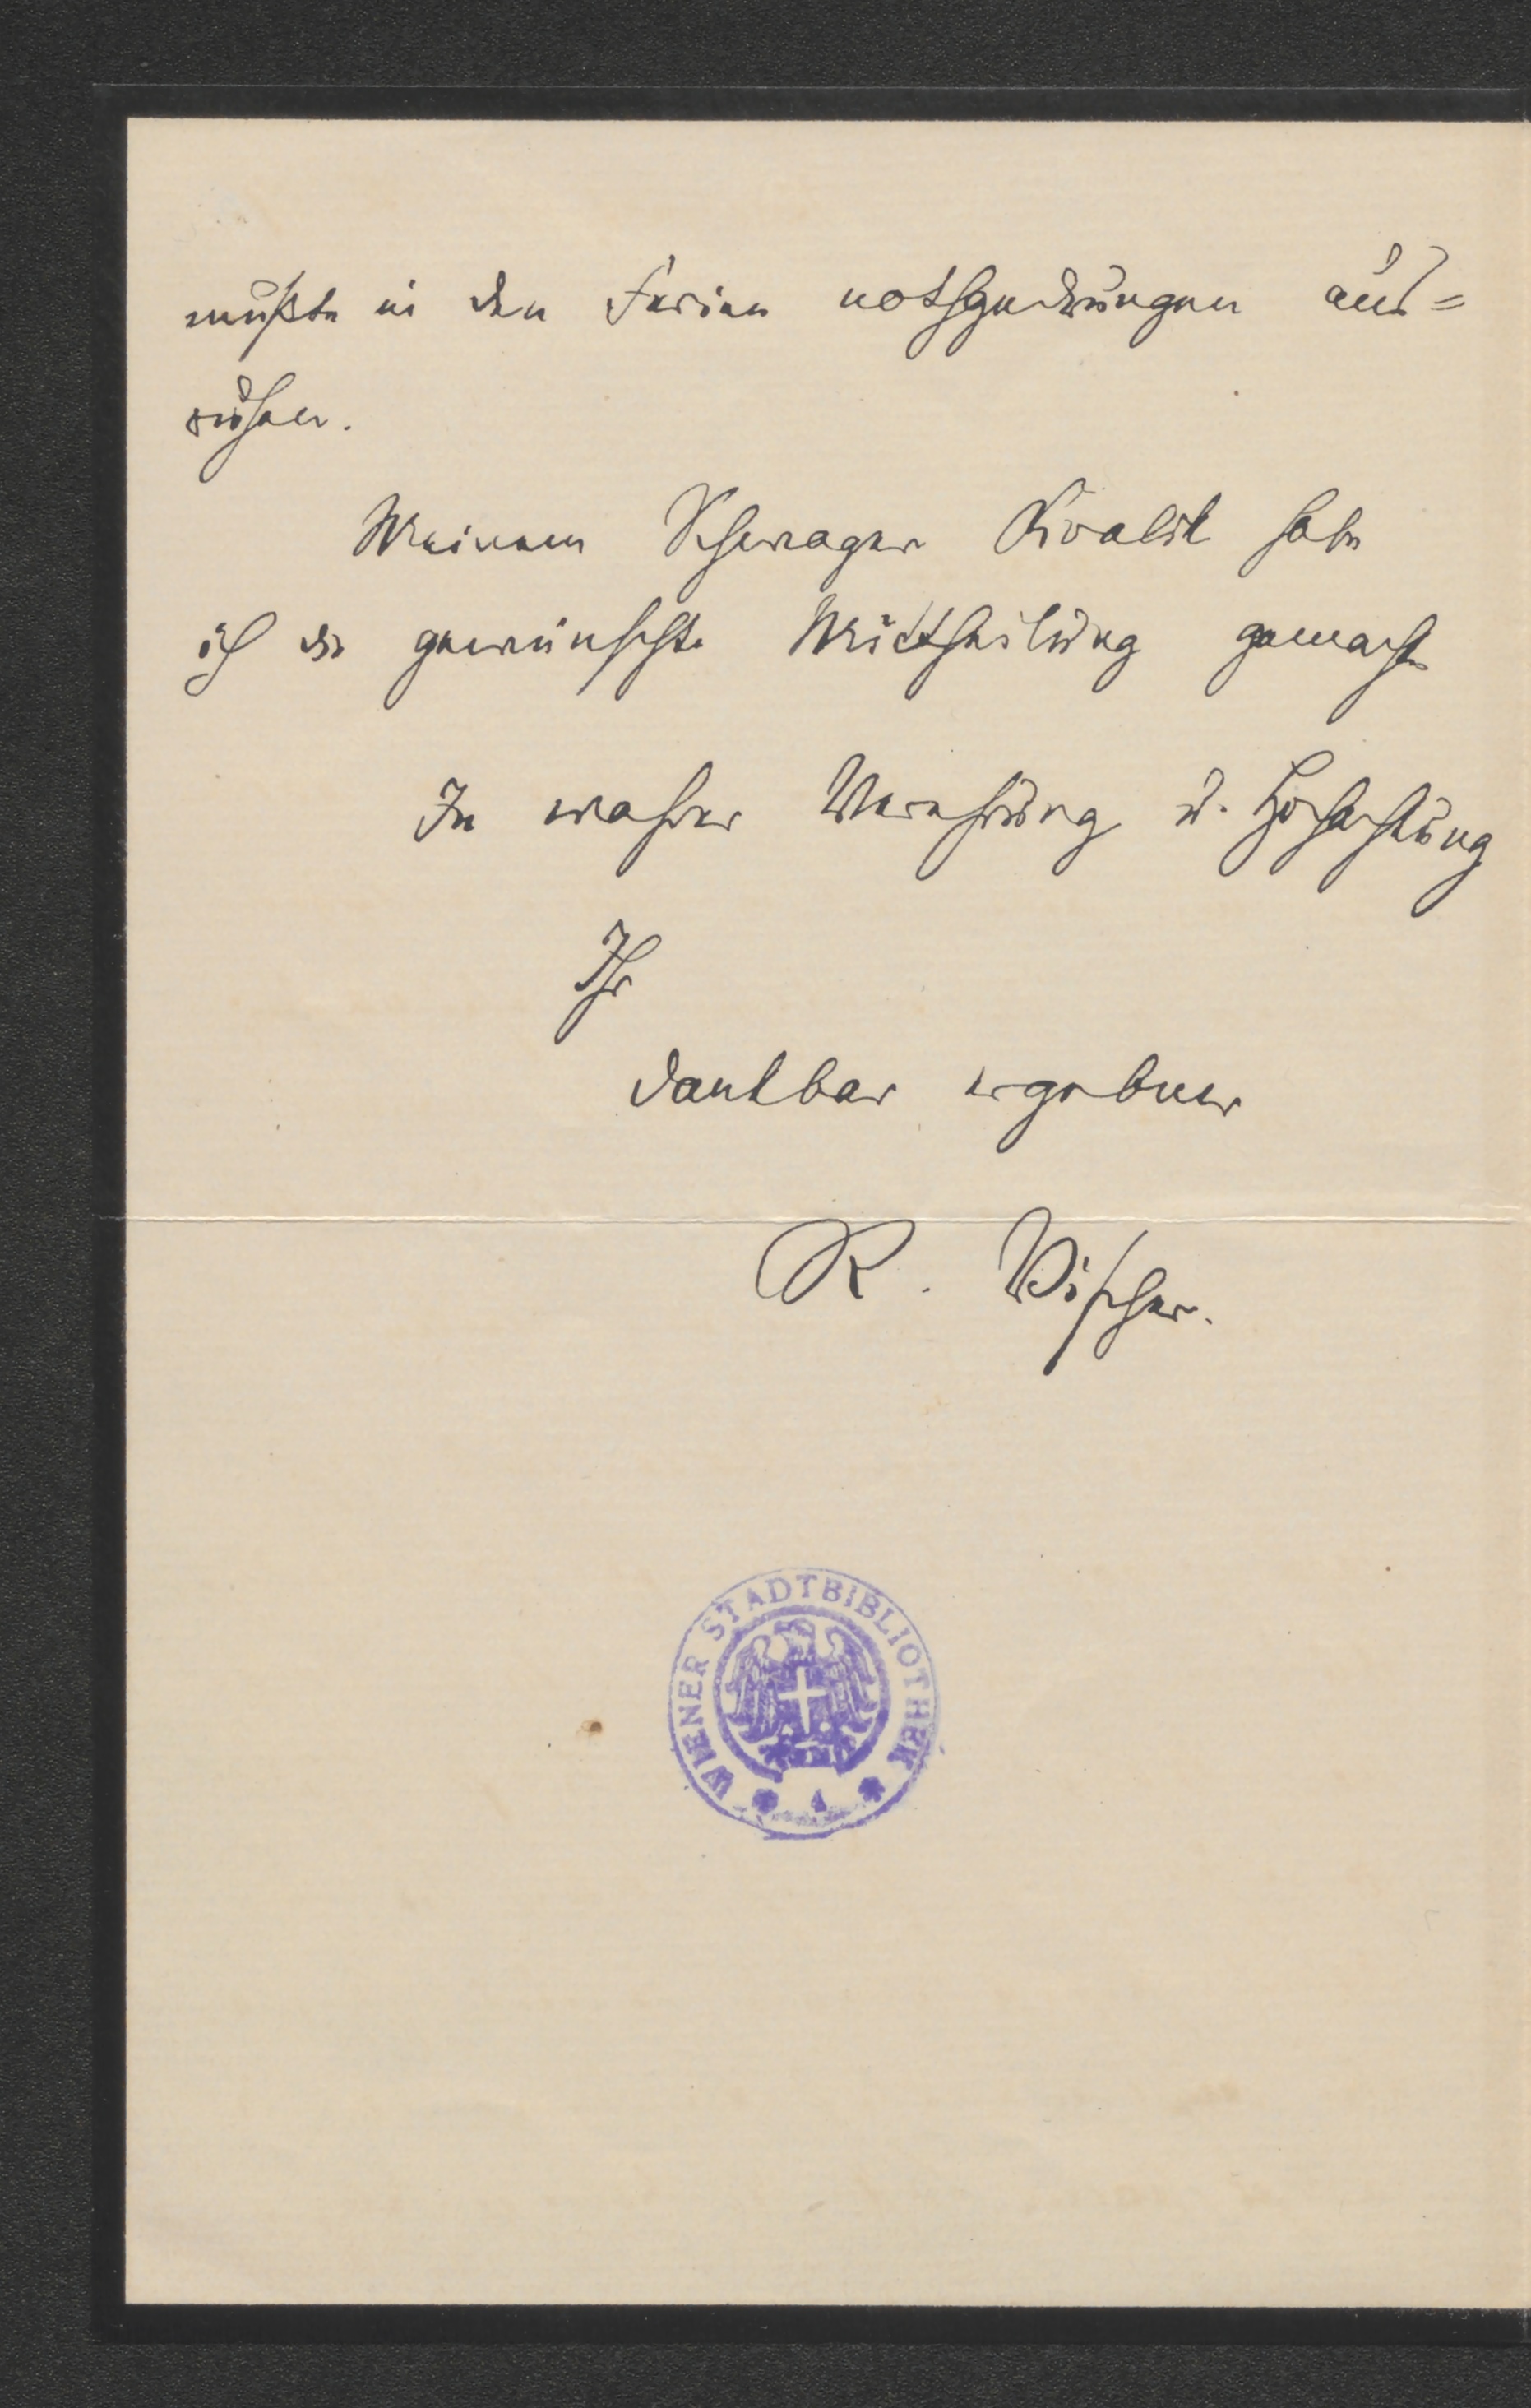 mußte in den Ferien nothgedrungen aus=
ruhen.
Meinem Schwager Kralik habe
ich die gewünschte Mittheilung gemacht
In wahrer Verehrung u. Hochachtung
Ihr
dankbar ergebner
R. Vischer.
WIENER STADTBIBLIOTHEK